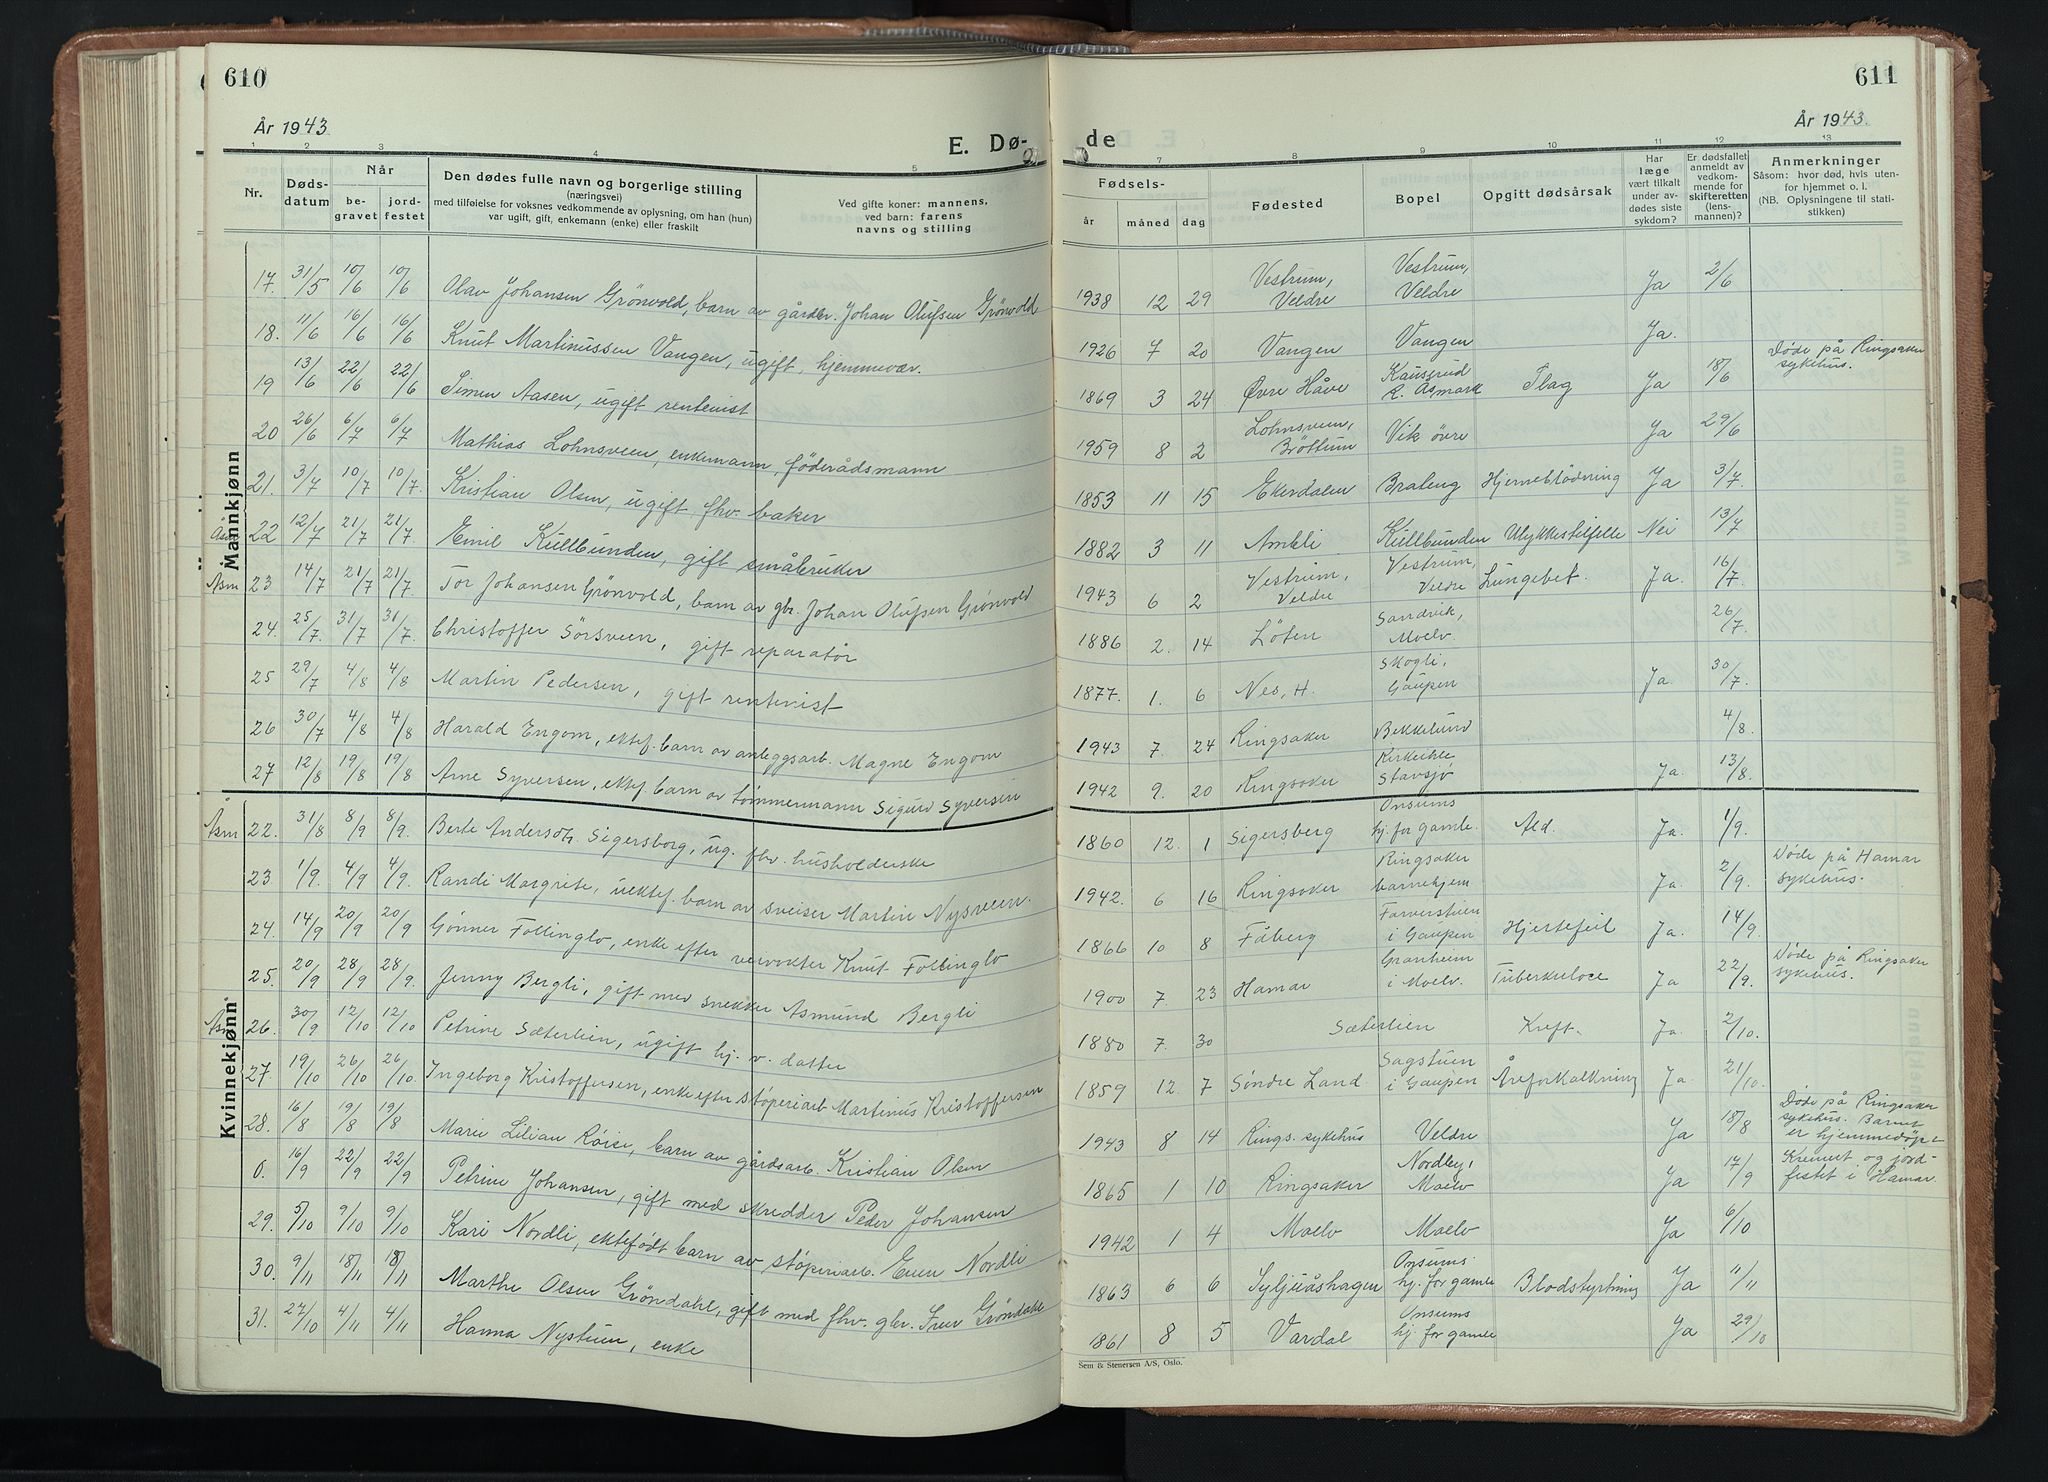 610
År 1943
E. Dø-
1 2 3 4 5
Nr.
Døds-
datum
Når
be-
gravet
jord-
festet
Den dødes fulle navn og borgerlige stilling
(næringsvei)
med tilføielse for voksnes vedkommende av oplysning, om han (hun)
var ugift, gift, enkemann (enke) eller fraskilt
Ved gifte koner: mannens,
ved barn: farens
navns og stilling
Mannkjønn
17. 31/5 10/6 10/6 Olav Johansen Grönvold, barn av gårdbr. Johan Olufsen Grönvold
18. 11/6 16/6 16/6 Knut Martinussen Vangen, ugift, hjemmevær.
19 13/6 22/6 22/6 Simen Aasen, ugift rentenist
20 26/6 6/7 6/7 Mathias Lohnsveen, enkemann, föderådsmann
21. 3/7 10/7 10/7. Kristian Olsen, ugift fhv. baker
22 12/7 21/7 21/7 Emil Kullbunden, gift småbruker
Åsm 23 14/7 21/7 21/7 Tor Johansen Grönvold, barn av gbr. Johan Olufsen Grönvold
24. 25/7 31/7 31/7. Christoffer Sörsveen, gift reparatör
25 29/7 4/8 4/8 Martin Pedersen, gift rentenist
26 30/7 4/8 4/8 Harald Engom, ektef. barn av anleggsarb. Magne Engom
27 12/8 19/8 19/8 Arne Syversen, ektef. barn av tömmermann Sigurd Syversen
Kvinnekjønn
Åsm 22. 31/8 8/9 8/9. Berte Andersdtr. Sigersborg, ug. fhv. husholderske
23. 1/9. 4/9 4/9. Randi Margrite, uektef. barn av sveiser Martin Nysveen.
24. 14/9 20/9 20/9 Gönner Föllinglo, enke efter veivokter Knut Föllinglo
25. 20/9 28/9 28/9. Jenny Bergli, gift med snekker Asmund Bergli
Åsm 26. 30/9 12/10 12/10 Petrine Sæterlien, ugift hj. v. datter
27. 19/10 26/10 26/10. Ingeborg Kristoffersen, enke efter støperiarb Martinus Kristoffersen
28. 16/8 19/8 19/8 Marie Lilian Røise, barn av gårdsarb. Kristian Olsen
0. 16/9 22/9 22/9 Petrine Johansen, gift med skredder Peder Johansen
29. 5/10 9/10 9/10 Kari Nordli, ektefödt barn av støperiarb. Even Nordli
30. 9/11 18/11 18/11 Marthe Olsen Gröndahl, gift med fhv. gbr. Iver Gröndahl
31. 27/10 4/11 4/11 Hanna Nystuen, enke
611
År 1943.
de
7 8 9 10 11 12 13
Fødsels-
år måned dag
Fødested
Bopel
Opgitt dødsårsak
Har
læge
vært tilkalt
under av-
dødes siste
sykdom?
Er dødsfallet
anmeldt av
vedkom-
mende for
skifteretten
(lens-
mannen)?
Anmerkninger
Såsom: hvor død, hvis uten-
for hjemmet o. l.
(NB. Oplysningene til stati-
stikken)
1938 12 29 Vestrum, Veldre Vestrum, Veldre Ja 2/6
1926 7 20 Vangen Vangen Ja.
1869 3 24 Øvre Håve R. Asmark Slag Ja 18/6 Döde på Ringsaker sykehus.
1959 8 2 Lohnsveen, Bröttum Vik övre Ja 29/6
1853 11 15 Ekerdalen Brateng Hjerneblödning Ja 3/7
1882 3 11 Ambli Kullbunden Ulykkestilfelle Nei 13/7
1943 6 2 Vestrum, Veldre Vestrum, Veldre Lungebet. Ja. 16/7
1886 2. 14 Löten Sandvik, Moelv. 26/7
1877. 1. 6 Nes, H. Skogli, Gaupen Ja. 30/7.
1943 7. 24 Ringsaker Bekkelund 4/8.
1942 9. 20 Ringsaker Stavsjö Ja. 13/8.
1860 12. 1 Sigersberg Onsums hj. for gamle. Ald. Ja. 1/9.
1942. 6 16 Ringsaker Ringsaker barnehjem Ja. 2/9. Döde på Hamar sykehus.
1866 10 8 Fåberg Farverstuen i Gaupen Hjertefeil Ja. 14/9.
1900 7. 23 Hamar Granheim i Moelv. Tuberkulose Ja 22/9. Döde på Ringsaker sykehus.
1880 7. 30 Sæterlien Kreft. Ja. 2/10.
1859 12. 7 Söndre Land. Sagstuen i Gaupen Åreforkalkning Ja. 21/10.
1943 8 14 Rings. sykehus Veldre Ja 18/8 Döde på Ringsaker sykehus. Barnet er hjemmedöpt
1865 1 10 Ringsaker Nordby, Moelv Ja 17/9 Kremert og jord-festet i Hamar.
1942 1 4 Moelv Moelv Ja 6/10
1863 6 6 Syljuåshagen Onsums hj. for gamle Blodstyrtning Ja 11/11
1861 8 5 Vardal Onsums hj. for gamle Ja 29/10
Sem & Stenersen A/S, Oslo.